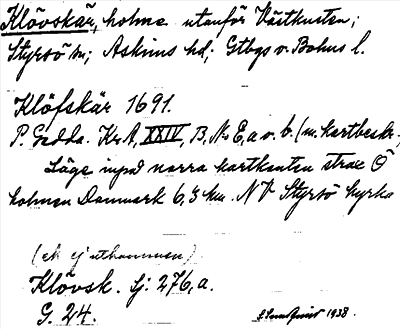 Klövskär, holme utanför Västkusten;
Styrsö sn; Askims hd; Gtbgs o. Bohus l.
Klöfskär 1691.
P. Gedda. Kr A, XXIV, B, No E, a o. b. (m. kartbeskr.;
Läge invid norra kartkanten strax Ö
holmen Danmark 6,3 km. NV Styrsö kyrka
(ek ej utkommen)
Klövsk. Gj: 276, a.
G. 24. 1938.